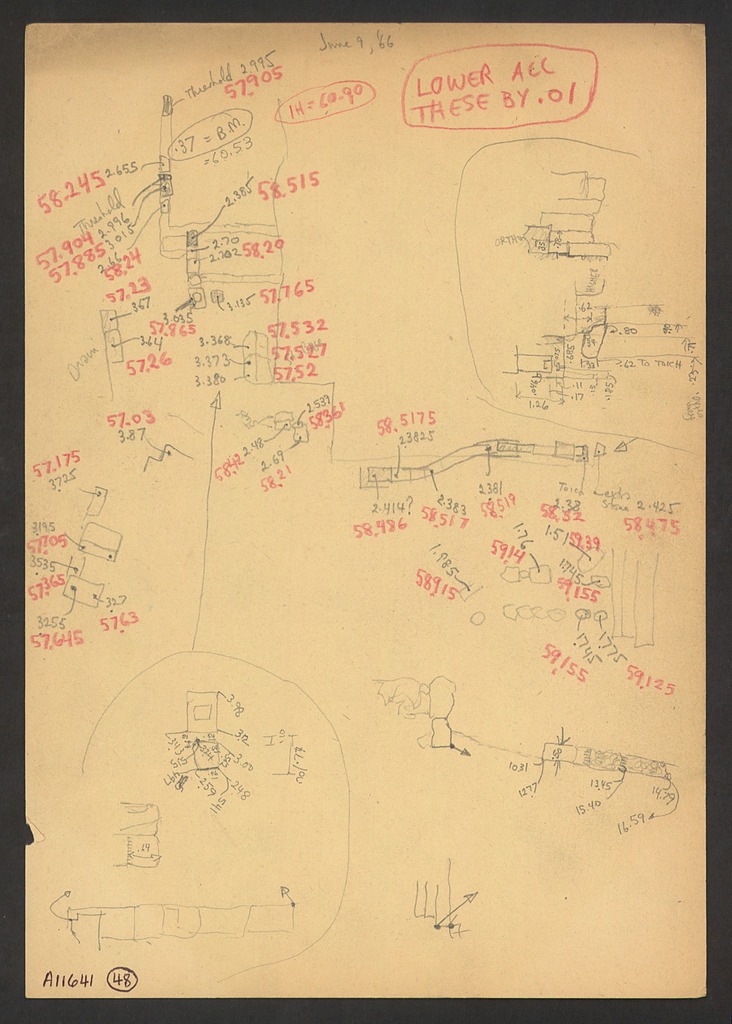 June 9, '66
LOWER ALL
THESE BY .01
Threshold 2.995
57.905
IH = 60.90
.37 = B.M.
= 60.53
2.655
58.245
Threshold
2.996
57.904
3.015
57.885
2.66
58.24
2.385
58.515
2.70
2.702
58.20
57.23
3.67
3.035
57.865
3.135
57.765
Drain
3.64
57.26
3.368
57.532
3.373
57.527
3.380
57.52
57.03
3.87
2.539
58.361
2.48
58.42
2.69
58.21
58.5175
2.3825
2.414?
58.486
2.383
58.517
2.381
58.519
2.38
58.52
Stone 2.425
58.475
57.175
3.725
3.195
57.705
3.535
57.365
3.255
57.645
3.27
57.63
1.985
58.915
1.76
59.14
1.51
59.39
1.745
59.155
1.745
59.155
1.775
59.125
ORTHO
HIGHER
.62
.80
.685
.62 TO TORCH
1.26
.11
.17
.185
3.98
3.12
3.00
2.48
2.59
5.41
.64
R
10.31
12.77
13.45
15.40
14.79
16.59
A11641 48